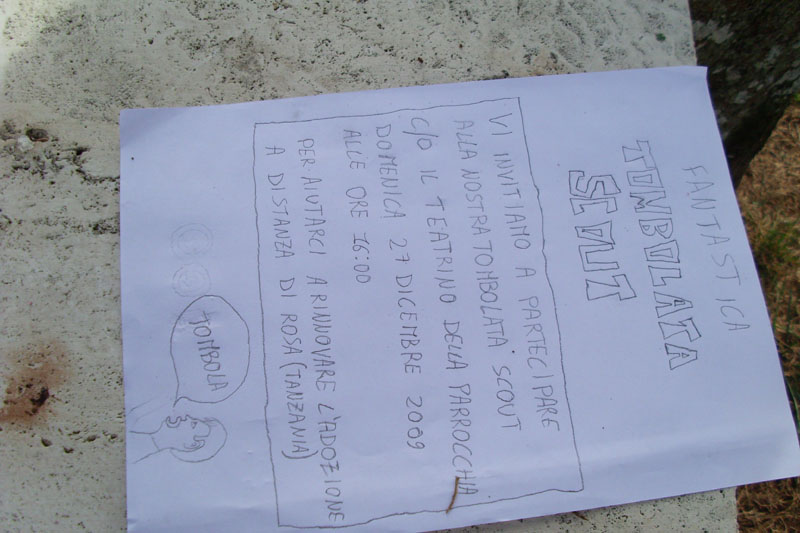 FANTASTICA
TOMBOLATA
SCOUT
VI INVITIAMO A PARTECIPARE
ALLA NOSTRA TOMBOLATA SCOUT
C/O IL TEATRINO DELLA PARROCCHIA
DOMENICA 27 DICEMBRE 2009
ALLE ORE 16:00
PER AIUTARCI A RINNOVARE L'ADOZIONE
A DISTANZA DI ROSA (TANZANIA)
TOMBOLA